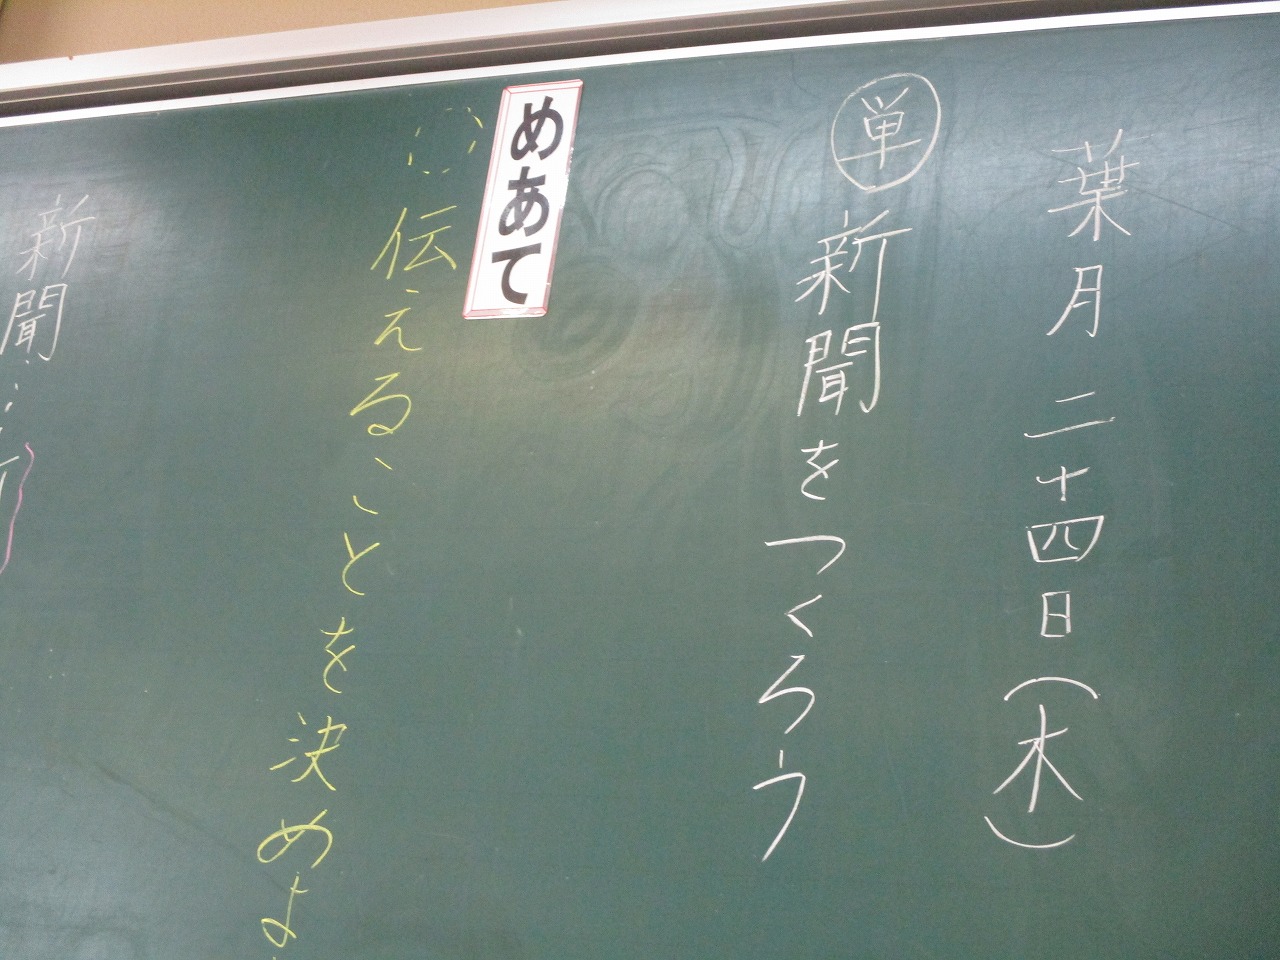 葉月二十四日(木)
単 新聞をつくろう
めあて
伝えることを決めよ
新聞